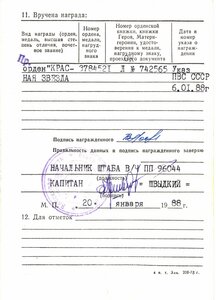 11. Вручена награда:
Вид награды (орден, медаль, высшая степень отличия, почетное звание)
Номер ордена, медали, нагрудного знака
Номер орденской книжки, книжки Героя, Матери-героини, удостоверения к медали, нагрудному знаку,
Дата и номер указа о награждении
орден "КРАС- 3784521 Л № 742565 Указ
НАЯ ЗВЕЗДА ПВС СССР
6.01.88г
Подпись награжденного
Правильность данных и подпись награжденного заверяю
НАЧАЛЬНИК ШТАБА В/Ч ПП 96044
КАПИТАН ШВЫДКИЙ
(должность)
М. П. 20 января 1988 г.
12. Для отметок